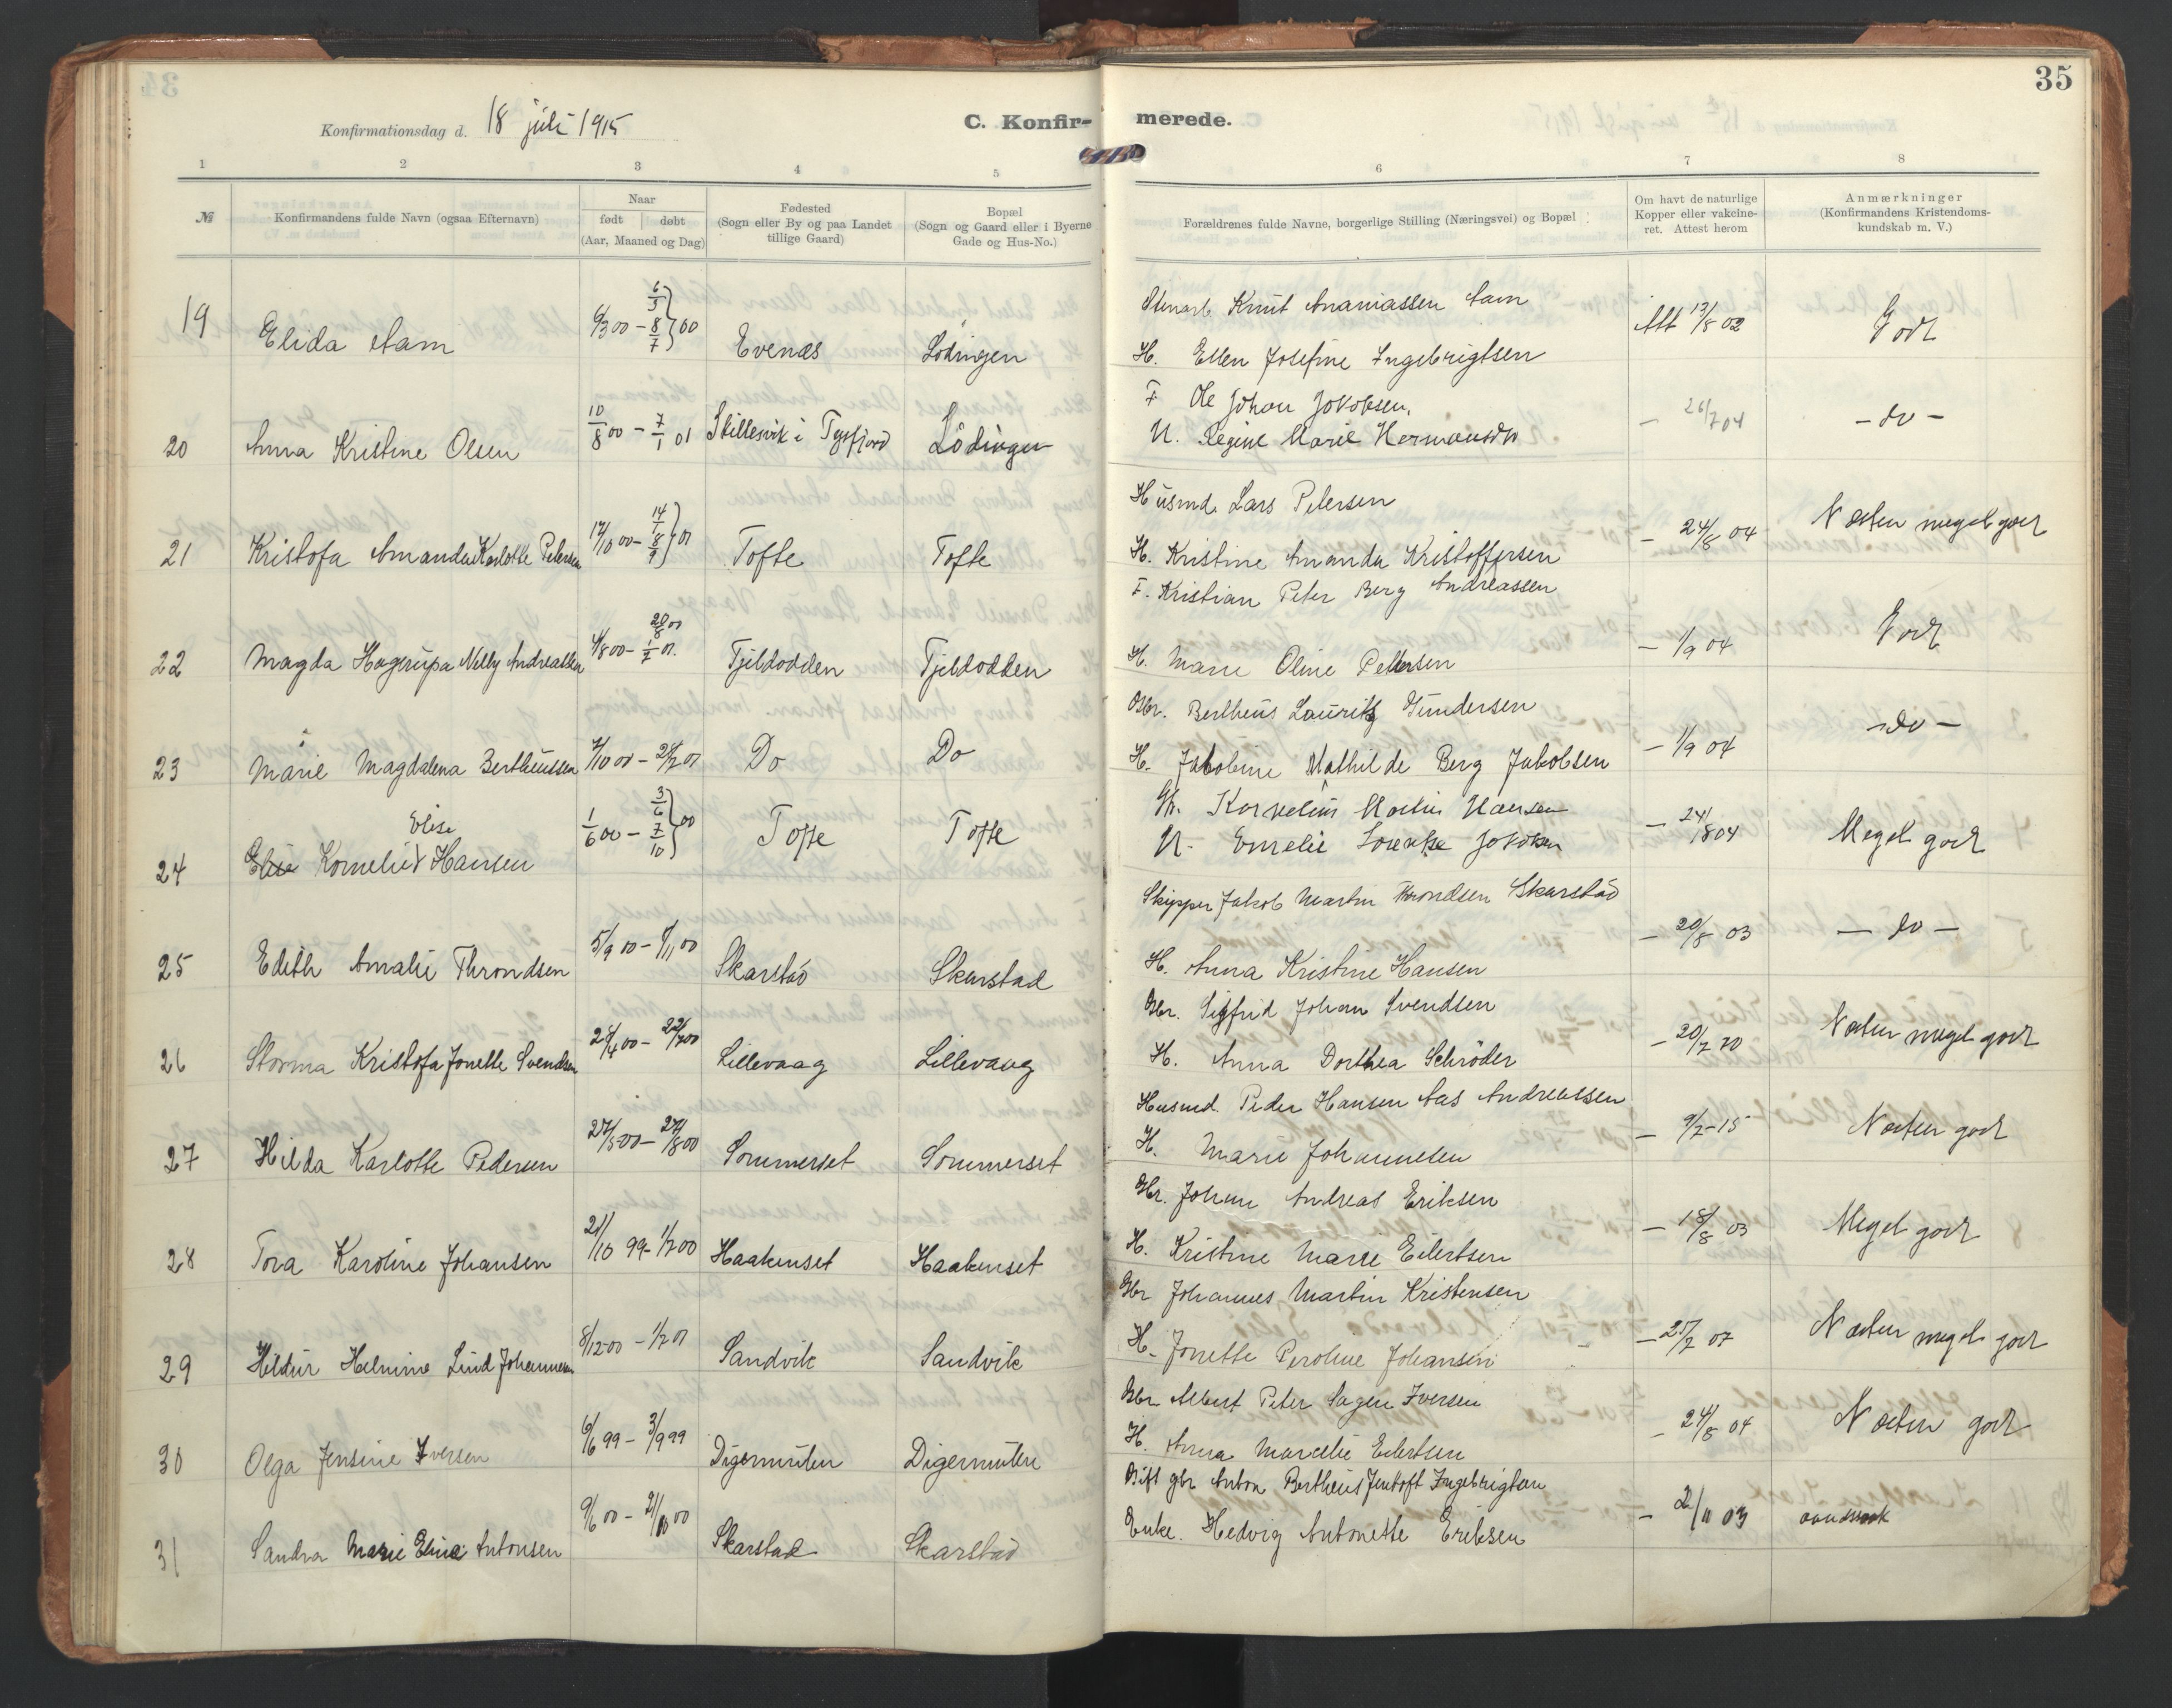 35
Konfirmationsdag d. 18 juli 1915
C. Konfir-merede.
1 2 3 4 5 6 7 8
№
Konfirmandens fulde Navn (ogsaa Efternavn)
Naar
født døbt
(Aar, Maaned og Dag)
Fødested
(Sogn eller By og paa Landet
tillige Gaard)
Bopæl
(Sogn og Gaard eller i Byerne
Gade og Hus-No.)
Forældrenes fulde Navne, borgerlige Stilling (Næringsvei) og Bopæl
Om havt de naturlige
Kopper eller vakcine-
ret. Attest herom
Anmærkninger
(Konfirmandens Kristendoms-
kundskab m. V.)
Knut Ananiassen Aam
19 Elida Aam 6/3 00 – 6/5 8/7 } 00 Evenes Lödingen Att 13/8 02 Godt
H. Ellen Josefine Ingebrigtsen
F Ole Johan Jakobsen,
20 Anna Kristine Olsen 10/8 00 – 7/1 01 Skillesvik i Tysfjord Lödingen – 26/7 04 – do –
H. Regine Marie Hermansdtr
Husmd. Lars Petersen
21 Kristofa Amanda Karlotte Petersen 17/10 00 – 14/1 8/9 } 01 Tofte Tofte – 24/8 04 Næsten meget godt
H. Kristine Amanda Kristoffersen
F. Kristian Peter Berg Andreassen
22 Magda Hagerupa Nelly Andreassen 4/8 00 – 28/8 00 1/7 01. Tjeldodden Tjeldodden – 1/9 04 Godt
H. Marie Oline Pettersen
Gbr. Bertheus Lauritz Gundersen
23 Marie Magdalena Bertheussen 7/10 00 – 28/7 01 Do Do – 1/9 04 – do –
H. Jakobine Mathilde Berg Jakobsen
Kornelius Martin Hansen
Elise
24 Elise Kornelie Hansen 1/6 00 – 3/6 7/10 } 00 Tofte Tofte – 24/8 04 Meget godt
H. Emelie Lorentse Jakobsen
Skipper Jakob Martin Throndsen Skarstad
25 Edith Amalie Throndsen 5/9 00 – 4/11 00 Skarstad Skarstad – 20/8 03 – do –
H. Anna Kristine Hansen
Gbr. Sigfrid Johan Svendsen
26 Storma Kristofa Jonette Svendsen 24/4 00 – 22/7 00 Lillevaag Lillevaag – 20/7 10 Næsten meget godt
H. Anna Dorthea Schröder
Husmd. Peder Hansen Aas Andreassen
27 Hilda Karlotte Pedersen 27/5 00 – 27/8 00 Sommerset Sommerset – 9/7 – 15 Næsten godt
H. Marie Johannesen
Gbr. Johan Andreas Eriksen
28 Tora Karoline Johansen 21/10 99 – 1/7 00 Haakenset Haakenset – 18/8 03 Meget godt
H. Kristine Marie Eilertsen
Gbr Johannes Martin Kristensen
29 Hildur Helmine Lind Johannesen 8/12 00 – 1/7 01 Sandvik Sandvik – 27/7 07 Næsten meget godt
H. Jonette Peroline Johansen
Gbr Albert Peter Sagen Iversen
30 Olga Jensine Iversen 6/6 99 – 3/9 99 Digermulen Digermulen – 24/8 04 Næsten godt
H. Anna Marcelie Eilertsen
Gift gbr Anton Bertheus Jentoft Ingebrigtsen
31 Sandra Marie Eline Antonsen 9/6 00 – 2/10 00 Skarstad Skarstad – 2/11 03 aandssvak
Enke. Hedvig Antonette Eriksen